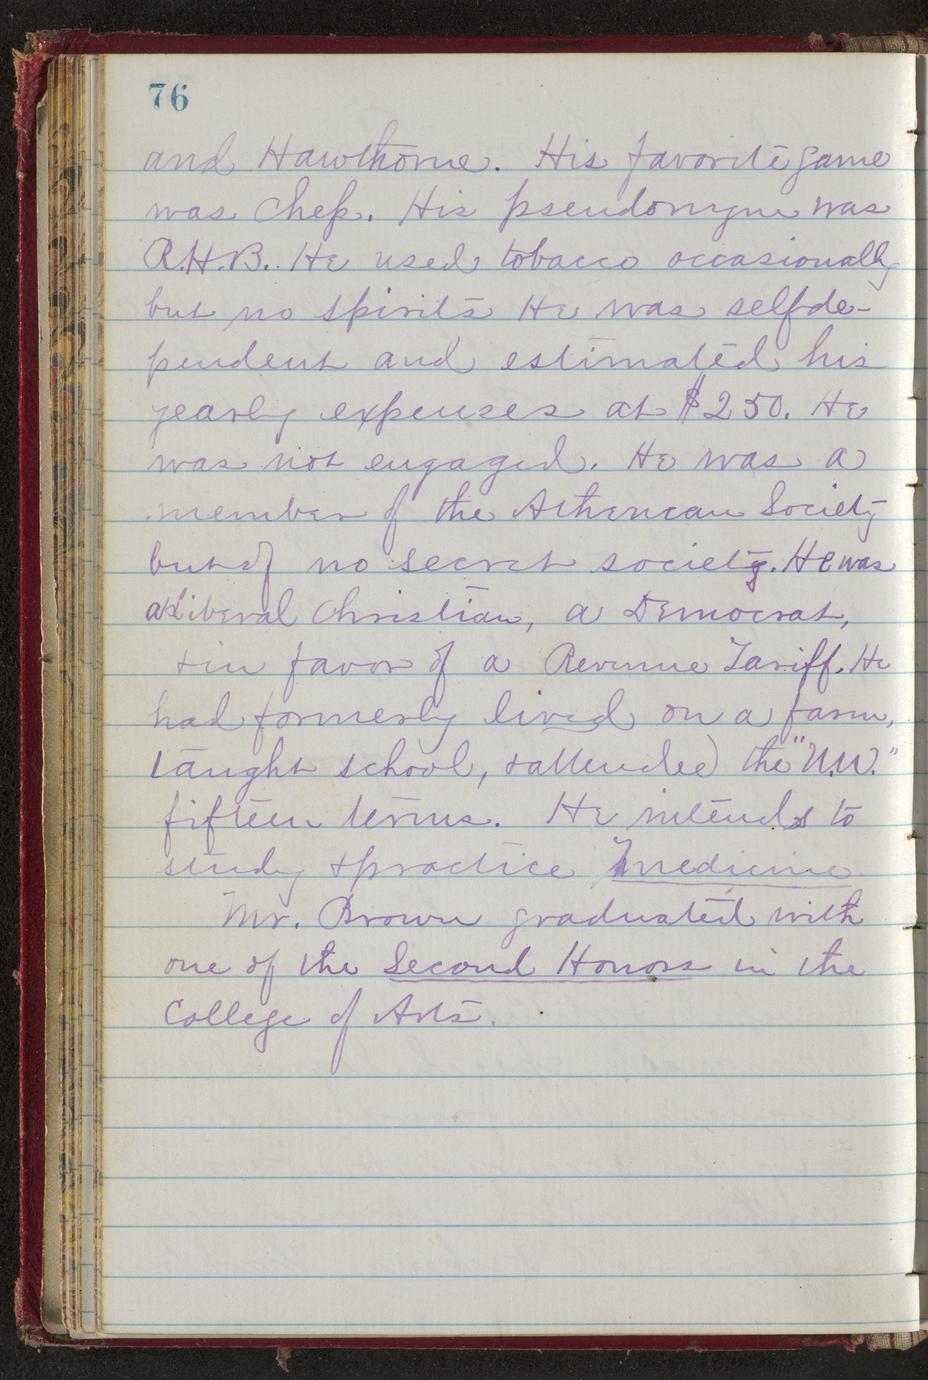 76
and Hawthorne. His favorite game
was Chess. His pseudonym was
R.H.B. He used tobacco occasionally
but no spirits He was self de-
pendent and estimated his
yearly expenses at $250. He
was not engaged. He was a
member of the Athenean Society
but of no secret society. He was
a Liberal Christian, a Democrat,
& in favor of a Revenue Tariff. He
had formerly lived on a farm,
taught school, & attended the "N.W."
fifteen terms. He intends to
study & practice medicine
Mr. Brown graduated with
one of the Second Honors in the
College of Arts.